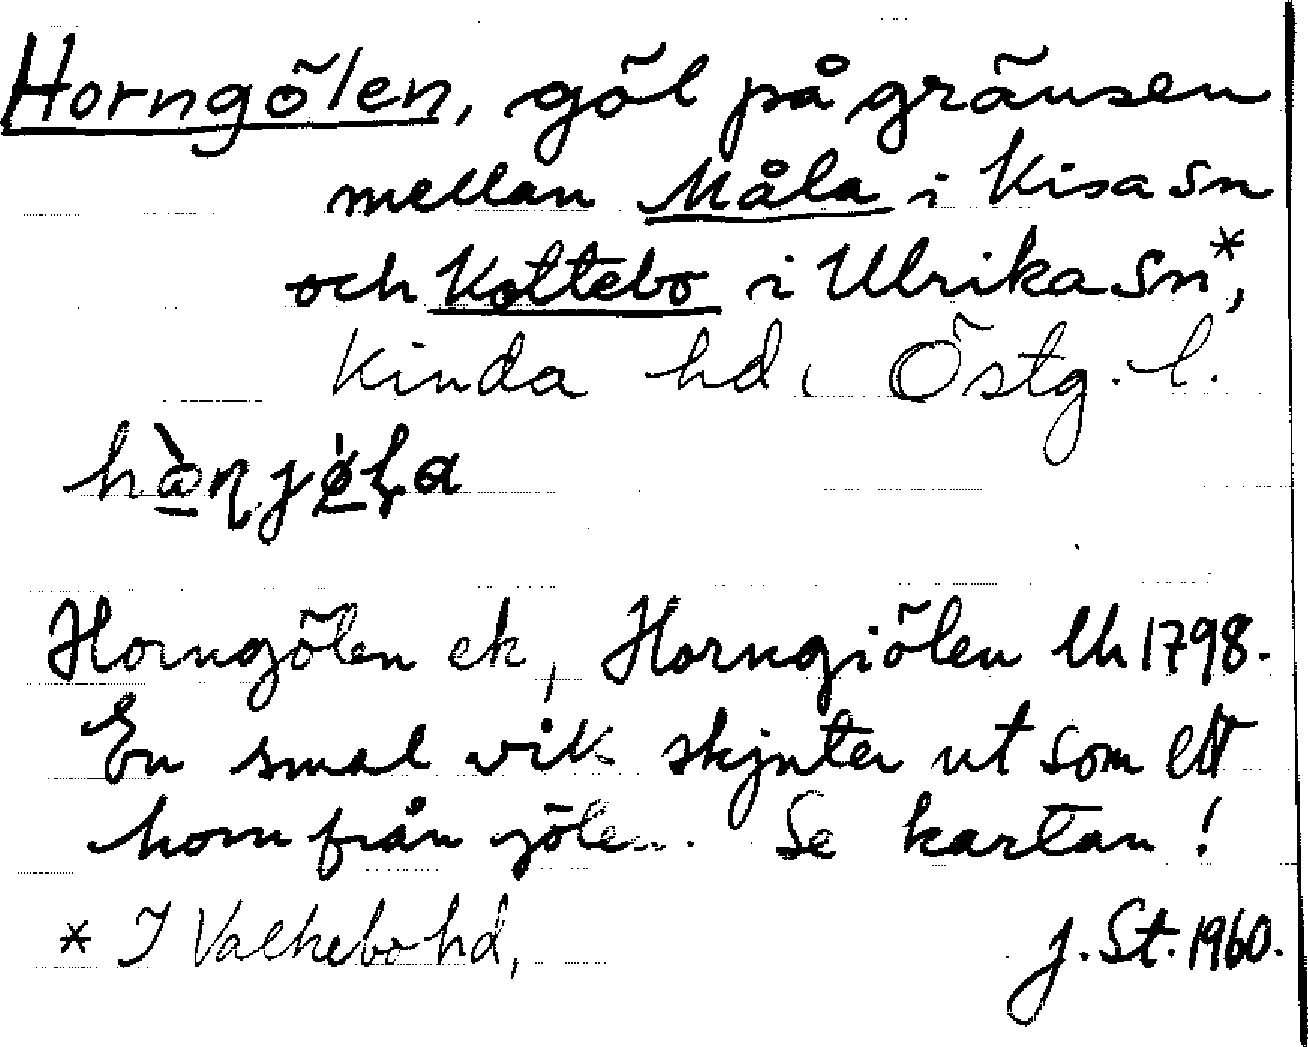 Horngölen, göl på gränsen
mellan Måla i Kisa sn
och Kottebo i Ulrika sn*,
Kinda hd, Östg. l.
Horngölen ek, Horngiölen lh 1798.
En smal vik skjuter ut som ett
horn från gölen. Se kartan!
* I Valkebo hd,
J. St. 1960.